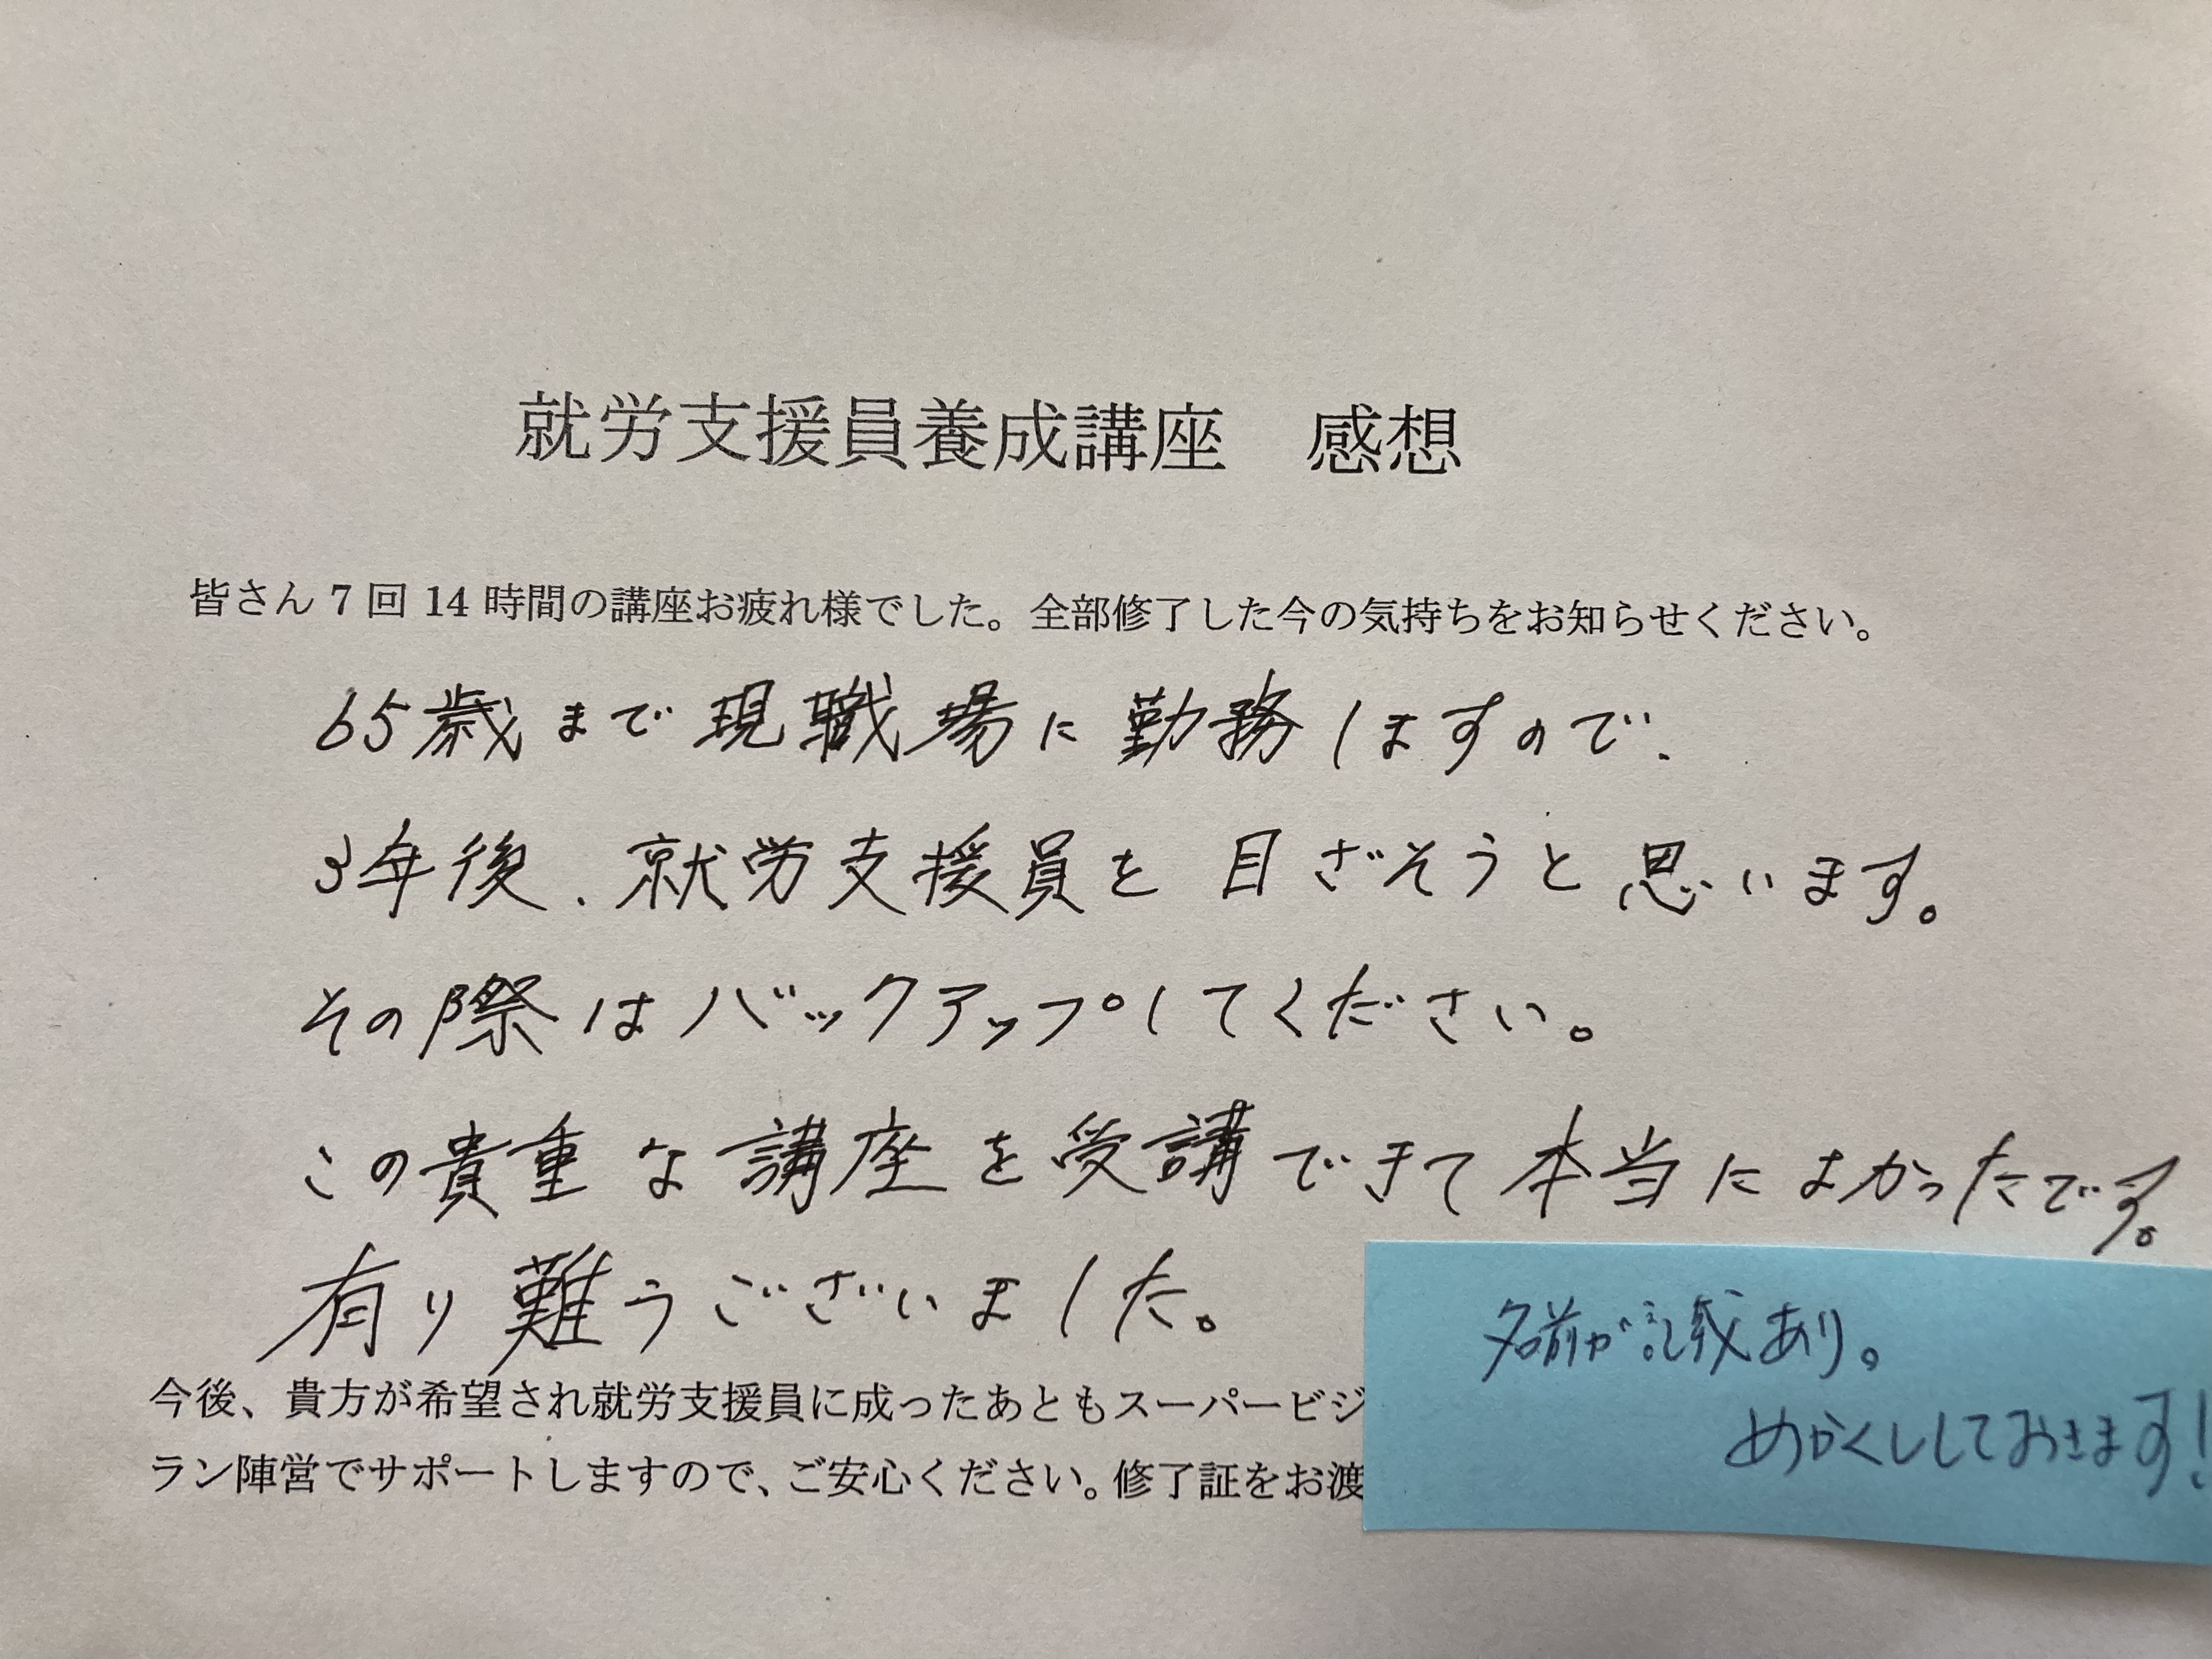 就労支援員養成講座　感想
皆さん7回14時間の講座お疲れ様でした。全部修了した今の気持ちをお知らせください。
65歳まで現職場に勤務しますので、
3年後、就労支援員を目ざそうと思います。
その際はバックアップしてください。
この貴重な講座を受講できて本当によかったです。
有り難うございました。
今後、貴方が希望され就労支援員に成ったあともスーパービジ
ラン陣営でサポートしますので、ご安心ください。修了証をお渡
名前が記載あり。
めかくししておきます!